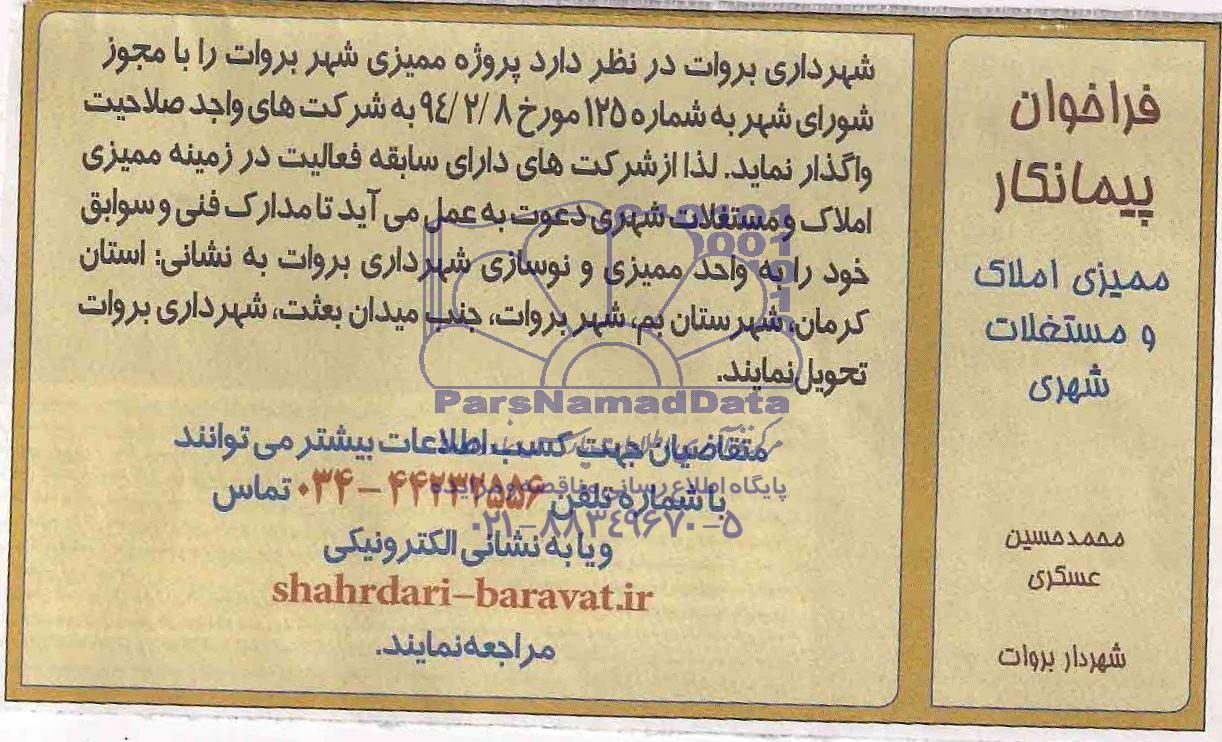 فراخوان
پیمانکار
ممیزی املاک
و مستغلات
شهری
محمدحسین
عسکری
شهردار بروات
شهرداری بروات در نظر دارد پروژه ممیزی شهر بروات را با مجوز
شورای شهر به شماره ۱۲۵ مورخ ۹٤/۲/۸ به شرکت های واجد صلاحیت
واگذار نماید. لذا از شرکت های دارای سابقه فعالیت در زمینه ممیزی
املاک و مستغلات شهری دعوت به عمل می آید تا مدارک فنی و سوابق
خود را به واحد ممیزی و نوسازی شهرداری بروات به نشانی: استان
کرمان، شهرستان بم، شهر بروات، جنب میدان بعثت، شهرداری بروات
تحویل نمایند.
ParsNamadData
متقاضیان جهت کسب اطلاعات بیشتر می توانند
پایگاه اطلاع رسانی مناقصه و مزایده
با شماره تلفن ۴۴۲۳۲۵۵۶ – ۰۳۴ تماس
۰۲۱–۸۸۳٤۹۶۷۰–۵
و یا به نشانی الکترونیکی
shahrdari–baravat.ir
مراجعه نمایند.